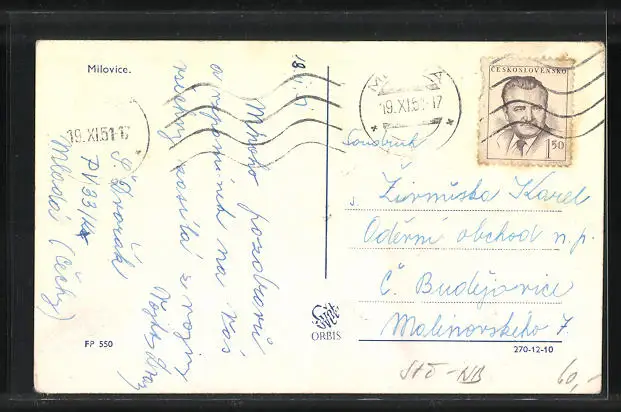 Milovice.
18.XI.51
Mnoho pozdravů
a vzpomínek na Vás
všechny zasílá z vojny
S. Dvořák
PV 33/
Mladá (Čechy)
FP 550
19.XI.51-17
ORBIS
19.XI.51-17
ČESKOSLOVENSKO
1 50
Soudruh
Karel
Oděvní obchod n.p.
Č. Budějovice
Malinovského 7
270-12-10
60,-